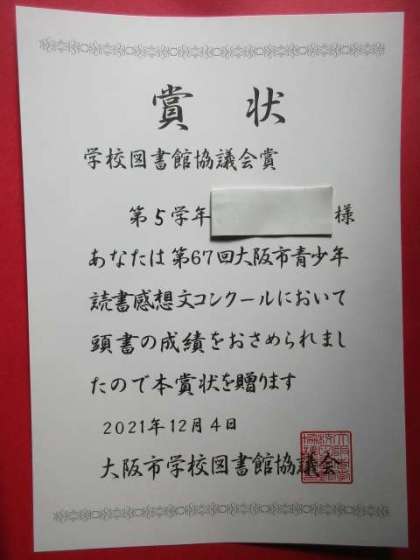 賞状
学校図書館協議会賞
第5学年 様
あなたは第67回大阪市青少年
読書感想文コンクールにおいて
頭書の成績をおさめられまし
たので本賞状を贈ります
2021年12月4日
大阪市学校図書館協議会